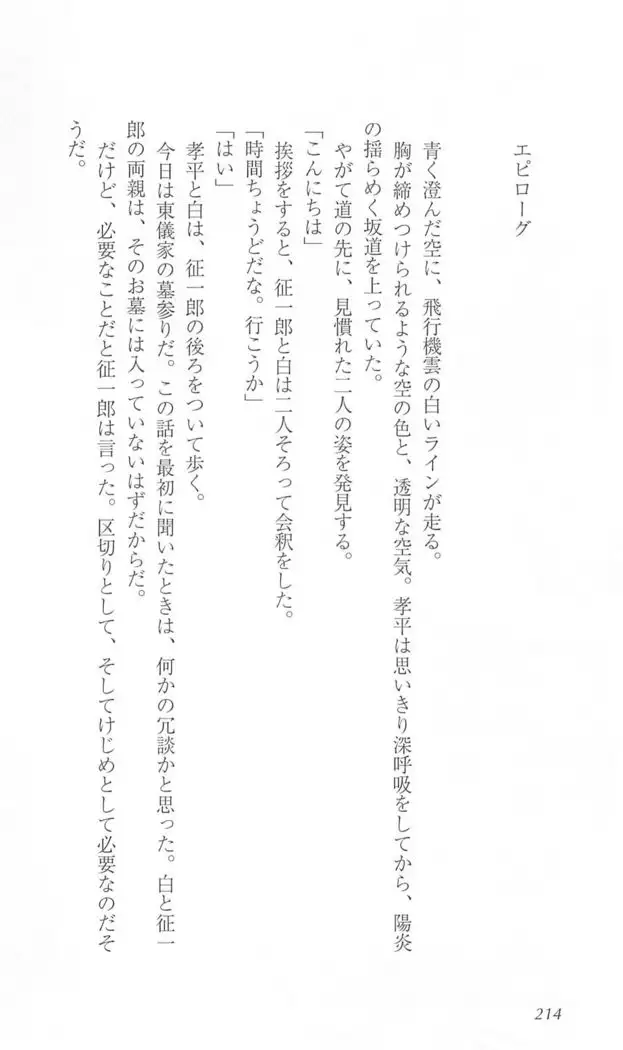 エピローグ
青く澄んだ空に、飛行機雲の白いラインが走る。
胸が締めつけられるような空の色と、透明な空気。孝平は思いきり深呼吸をしてから、陽炎
の揺らめく坂道を上っていた。
やがて道の先に、見慣れた二人の姿を発見する。
「こんにちは」
挨拶をすると、征一郎と白は二人そろって会釈をした。
「時間ちょうどだな。行こうか」
「はい」
孝平と白は、征一郎の後ろをついて歩く。
今日は東儀家の墓参りだ。この話を最初に聞いたときは、何かの冗談かと思った。白と征一
郎の両親は、そのお墓には入っていないはずだからだ。
だけど、必要なことだと征一郎は言った。区切りとして、そしてけじめとして必要なのだそ
うだ。
214